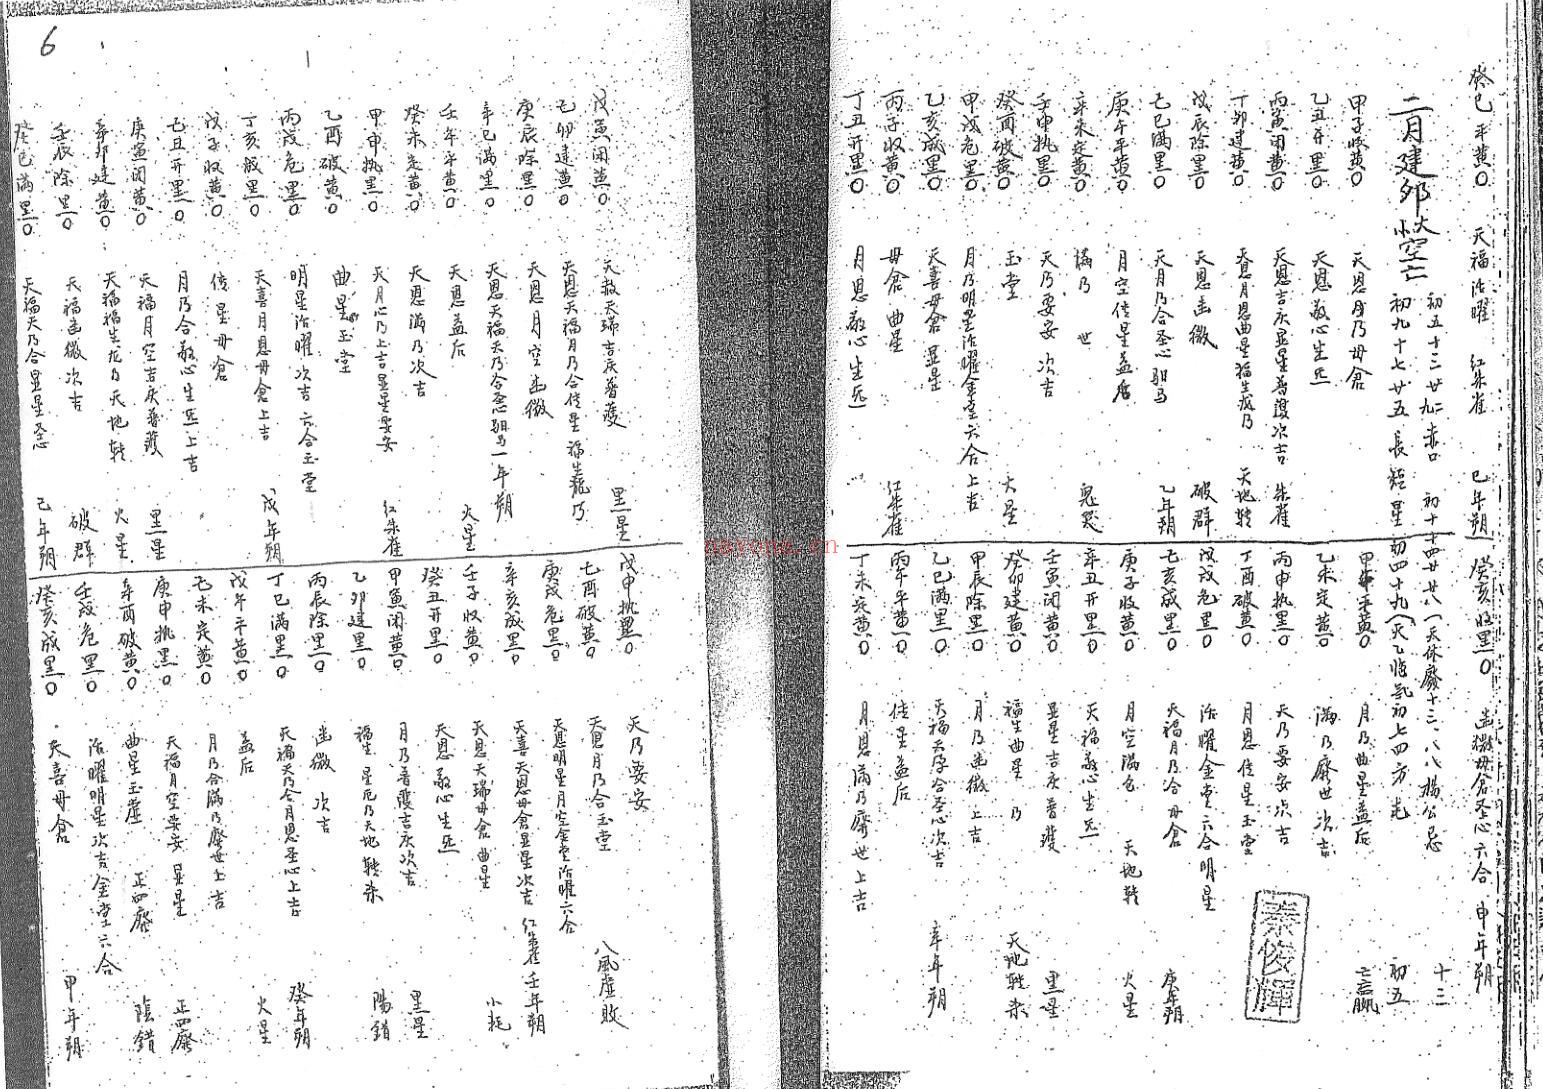 癸巳平黄〇 天福活曜 红朱雀 巳年朔
癸亥收黑〇 幽微母倉圣心六合 申年朔
二月建卯 大小空亡
初五十三廿九 赤口
初九十七廿五 長短星
天休廢十三 楊公忌 十三
初五
甲子收黄〇 天恩月乃母倉
月乃曲星益后 亡贏
乙丑开黑〇 天恩敬心生炁
乙未定黄〇 滿乃廢世次吉
丙寅闭黄〇 天恩吉庆显星普護次吉 朱雀
丙申执黑〇 天乃要安次吉
丁卯建黄〇 天恩月恩曲星福生 天地转
丁酉破黄〇 月恩佳星玉堂
戊辰除黑〇 天恩幽微 破群
戊戌危黑〇 活曜金堂六合明星
己巳滿黑〇 天月乃合圣心驲马 乙年朔
己亥成黑〇 天福月乃合母倉 庚年朔
庚午平黄〇 月空佳星益后
庚子收黄〇 月空滿 天地转 火星
辛未定黄〇 滿乃 世 鬼哭
辛丑开黑〇 天福敬心生炁
壬申执黑〇 天乃要安次吉
壬寅闭黄〇 显星吉庆普護 黑星
癸酉破黄〇 玉堂 火星
癸卯建黄〇 福生曲星 乃 天地转杀
甲戌危黑〇 月乃明星活曜金堂六合上吉
甲辰除黑〇 月乃幽微上吉
乙亥成黑〇 天喜母倉显星
乙巳滿黑〇 天福天乃合圣心次吉 辛年朔
丙子收黄〇 母倉曲星 红朱雀
丙午平黄〇 佳星益后
丁丑开黑〇 月恩敬心生炁
丁未定黄〇 月恩滿乃廢世上吉
秦俊輝
6
戊寅闭黄〇 天赦天瑞吉庆普護 黑星
戊申执黑〇 天乃要安
己卯建黄〇 天恩天福月乃合佳星福生龍乃
己酉破黄〇 天恩月乃合玉堂 八風虚敗
庚辰除黑〇 天恩月空幽微
庚戌危黑〇 天恩明星月空金堂活曜六合
辛巳滿黑〇 天恩天福天乃合圣驲马 一年朔
辛亥成黑〇 天喜天恩母倉显星次吉 红朱雀 壬年朔
壬午平黄〇 天恩益后 火星
壬子收黄〇 天恩天瑞母倉曲星 小耗
癸未定黄〇 天恩滿乃次吉
癸丑开黑〇 天恩敬心生炁
甲申执黑〇 天月乃上吉显星要安 红朱雀
甲寅闭黄〇 月乃普護吉庆次吉 黑星
乙酉破黄〇 曲星玉堂
乙卯建黑〇 福生 天地转杀 陽錯
丙戌危黑〇 明星活曜次吉六合玉堂
丙辰除黑〇 幽微 次吉
丁亥成黑〇 天喜月恩母倉上吉 戊年朔
丁巳滿黑〇 天福天乃合月恩圣心上吉 癸年朔
戊子收黄〇 佳星母倉
戊午平黄〇 益后 火星
己丑开黑〇 月乃合敬心生炁上吉
己未定黄〇 月乃合滿乃廢世上吉
庚寅闭黄〇 天福月空吉庆普護 黑星
庚申执黑〇 天福月空要安显星 正四廢
辛卯建黄〇 天福福生龙乃天地转 火星
辛酉破黄〇 曲星玉堂 正四廢 陰錯
壬辰除黑〇 天福幽微次吉 破群
壬戌危黑〇 活曜明星次吉金堂六合
癸巳滿黑〇 天福天乃合显星圣 己年朔
癸亥成黑〇 天喜母倉 甲年朔
nayona.cn